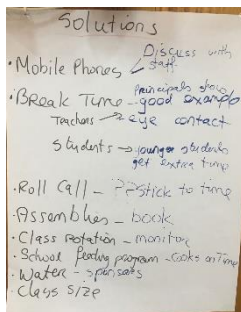 Solutions
Discuss with
· Mobile Phones staff
Principals show
· Break Time - good example
Teachers → eye contact
Students → younger students
get extra time
· Roll Call - ?? stick to time
· Assemblies - book
· Class Rotation - monitor
· School feeding program - cooks on time
· Water - sponsors
· Class size